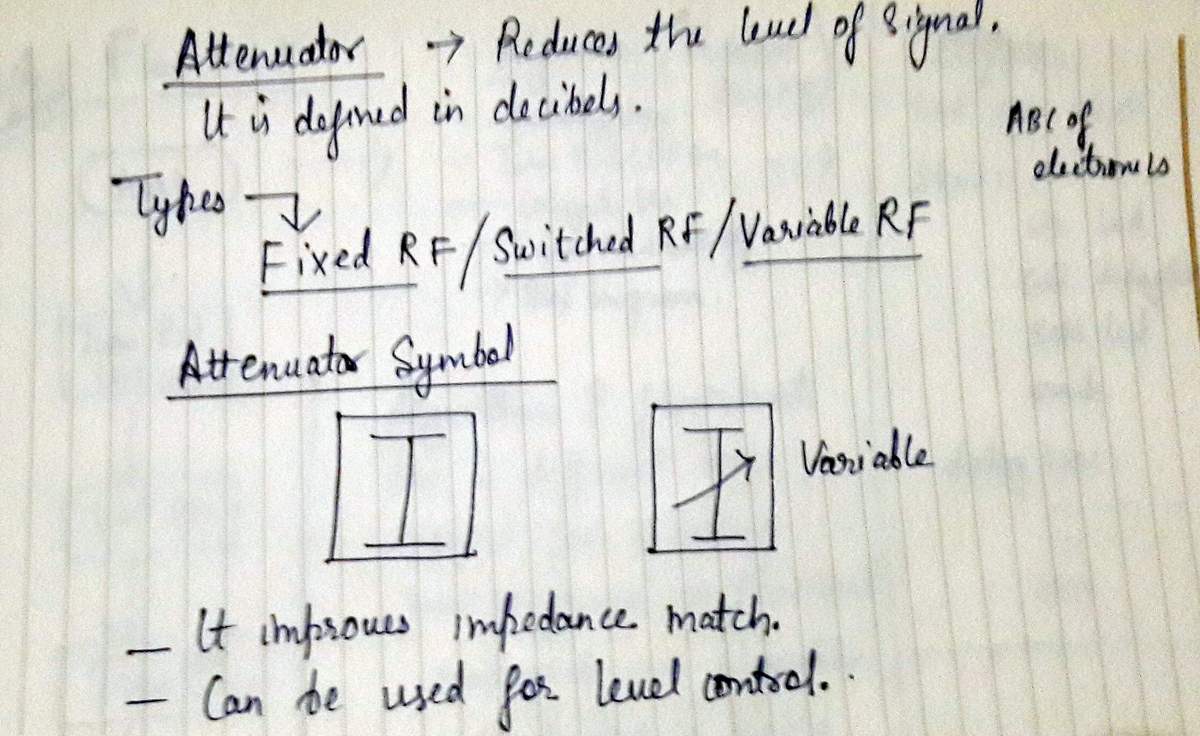 Attenuator → Reduces the level of signal.
It is defined in decibels.
ABC of
electronics
Types
Fixed RF / Switched RF / Variable RF
Attenuator Symbol
Variable
– It improves impedance match.
– Can be used for level control.